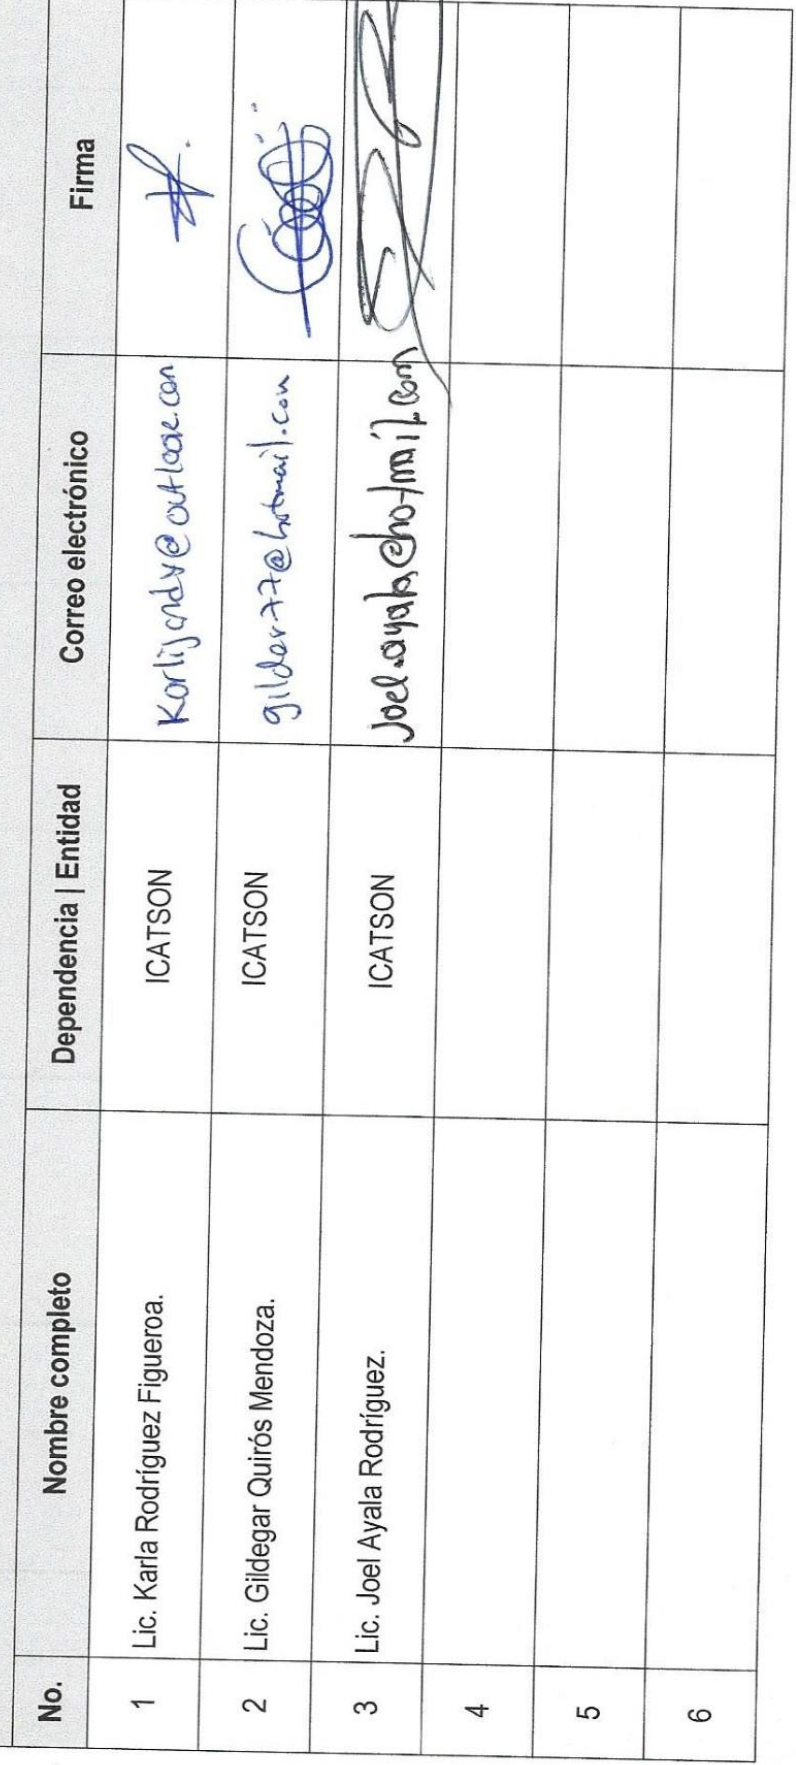 No. Nombre completo Dependencia | Entidad Correo electrónico Firma
1 Lic. Karla Rodríguez Figueroa. ICATSON
2 Lic. Gildegar Quirós Mendoza. ICATSON gilder77@hotmail.com
3 Lic. Joel Ayala Rodríguez. ICATSON Joel.ayala@hotmail.com
4
5
6